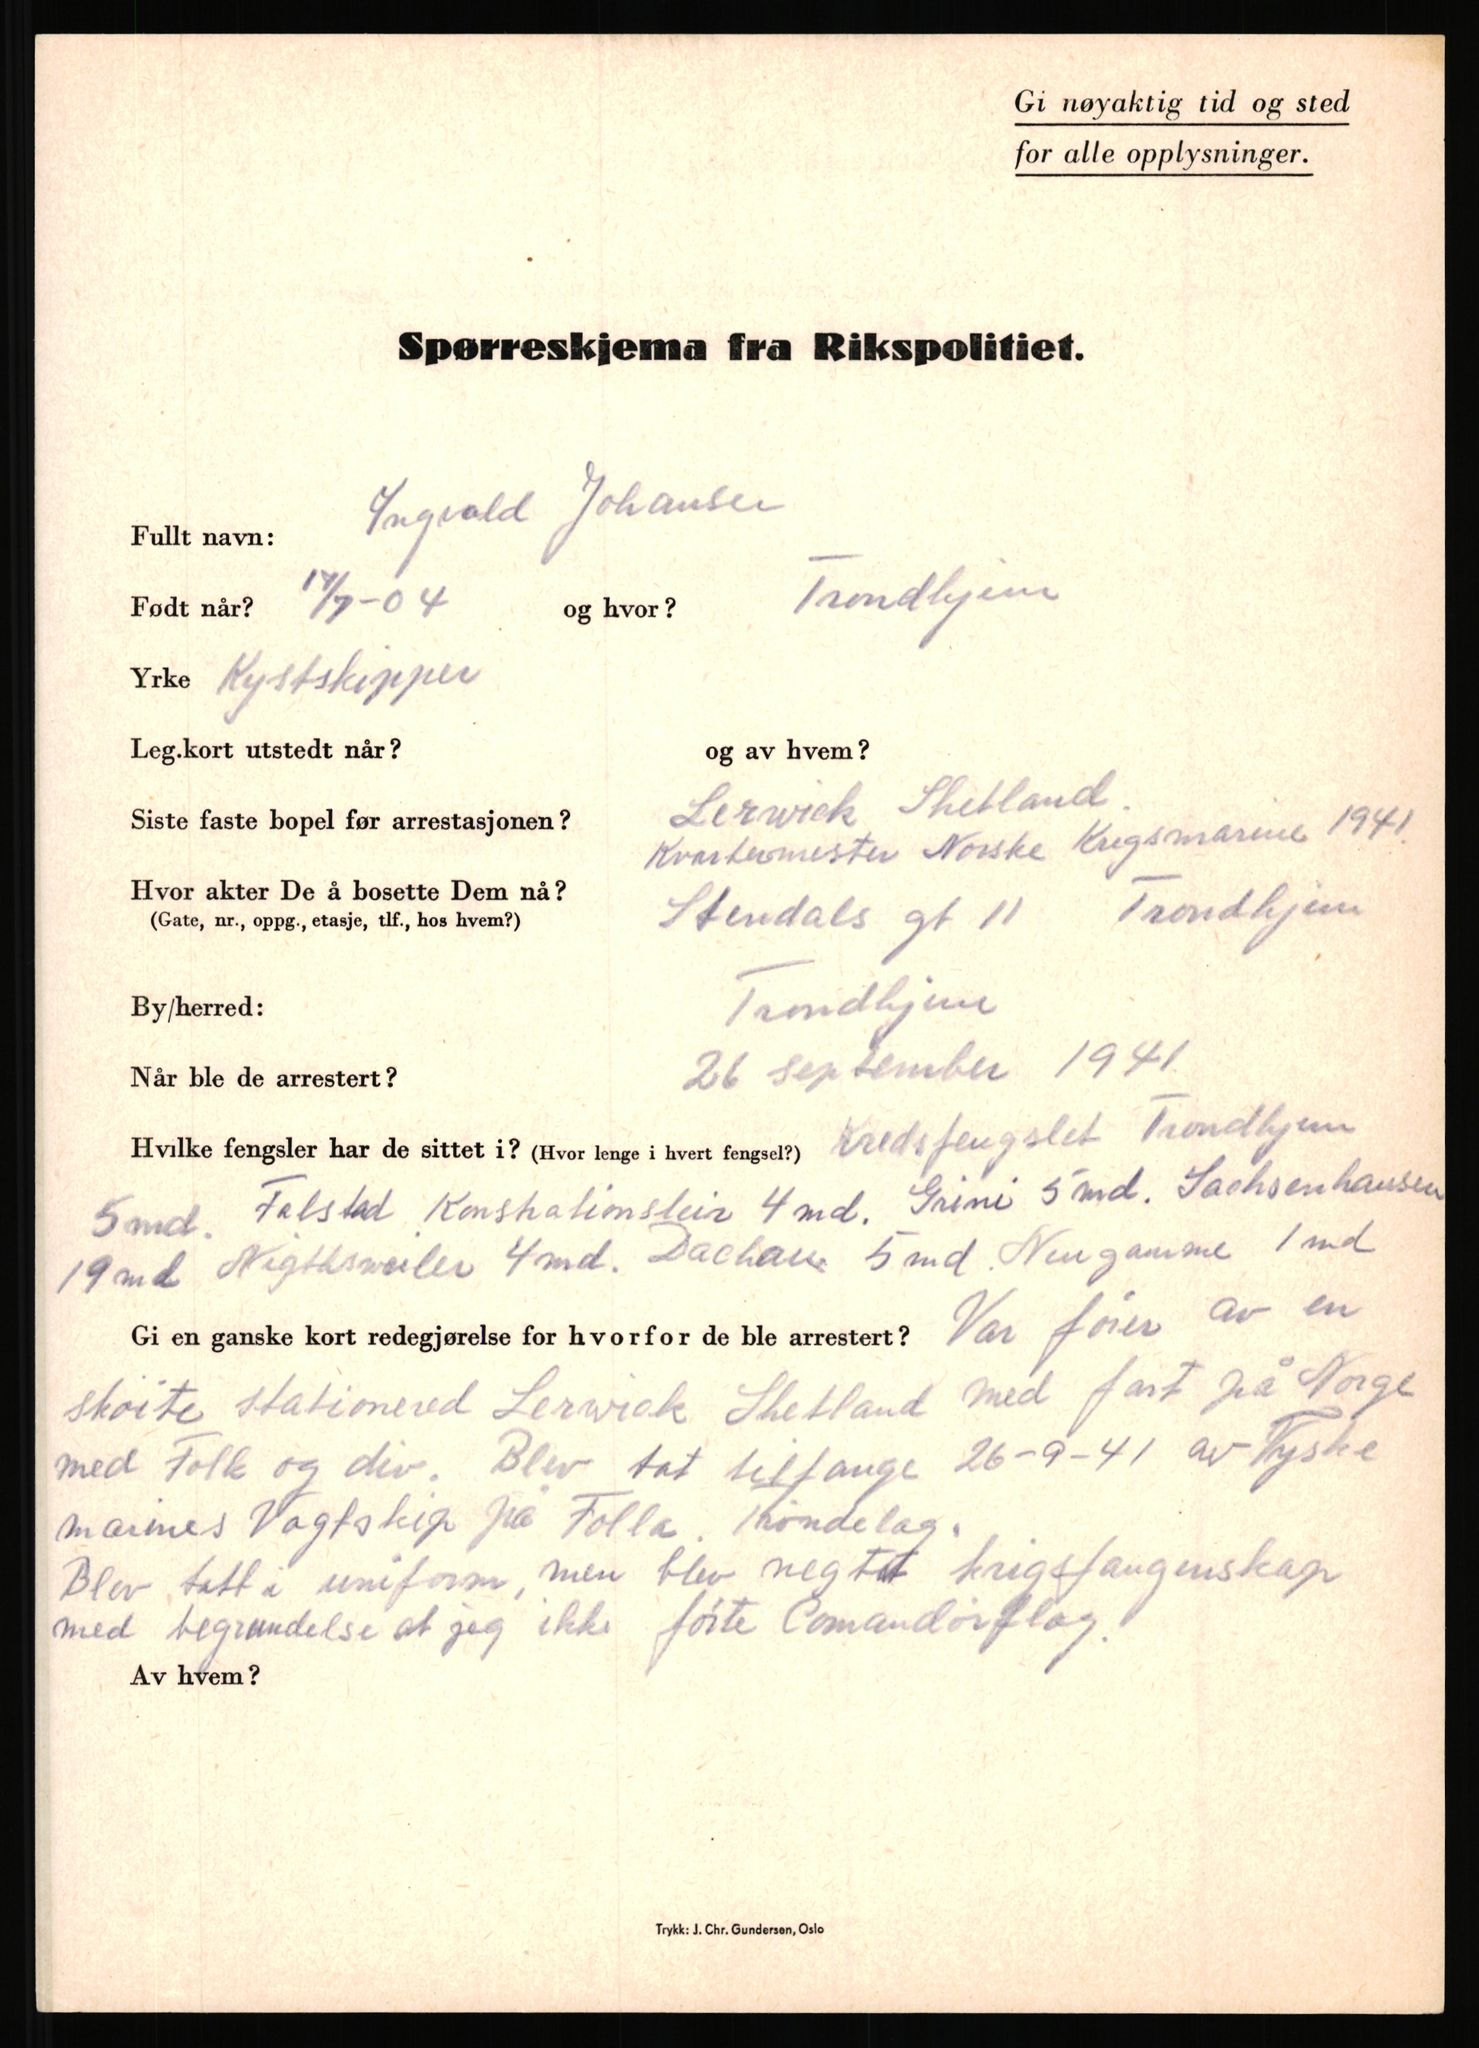 Gi nøyaktig tid og sted
for alle opplysninger.
Spørreskjema fra Rikspolitiet.
Fullt navn: Yngvald Johansen
Født når? 17/7-04 og hvor? Trondhjem
Yrke Kystskipper
Leg.kort utstedt når? og av hvem?
Siste faste bopel før arrestasjonen? Lerwick Shetland.
Kvartermester Norske Krigsmarine 1941.
Hvor akter De å bosette Dem nå? Stendals gt 11 Trondhjem
(Gate, nr., oppg., etasje, tlf., hos hvem?)
By/herred: Trondhjem
Når ble de arrestert? 26 september 1941
Hvilke fengsler har de sittet i? (Hvor lenge i hvert fengsel?) Kredsfengslet Trondhjem
5 md. Falstad Konstrationsleir 4 md. Grini 5 md. Sachsenhausen
19 md Nigthsweiler 4 md. Dachau 5 md. Neugamme 1 md
Gi en ganske kort redegjørelse for hvorfor de ble arrestert? Var förer av en
sköite stationered Lerwick Shetland med fart på Norge
med Folk og div. Blev tat tilfange 26-9-41 av Tyske
marines Vagtskip på Folla. Tröndelag.
Blev tatt i uniform, men blev negtet krigsfangenskap
med begrundelse at jeg ikke förte Comandörflag.
Av hvem?
Trykk: J. Chr. Gundersen, Oslo